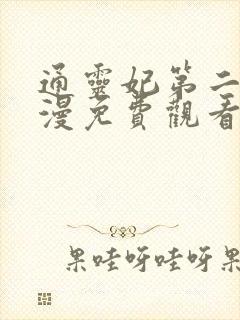 通靈妃第二
漫免費觀看
果哇呀哇呀果